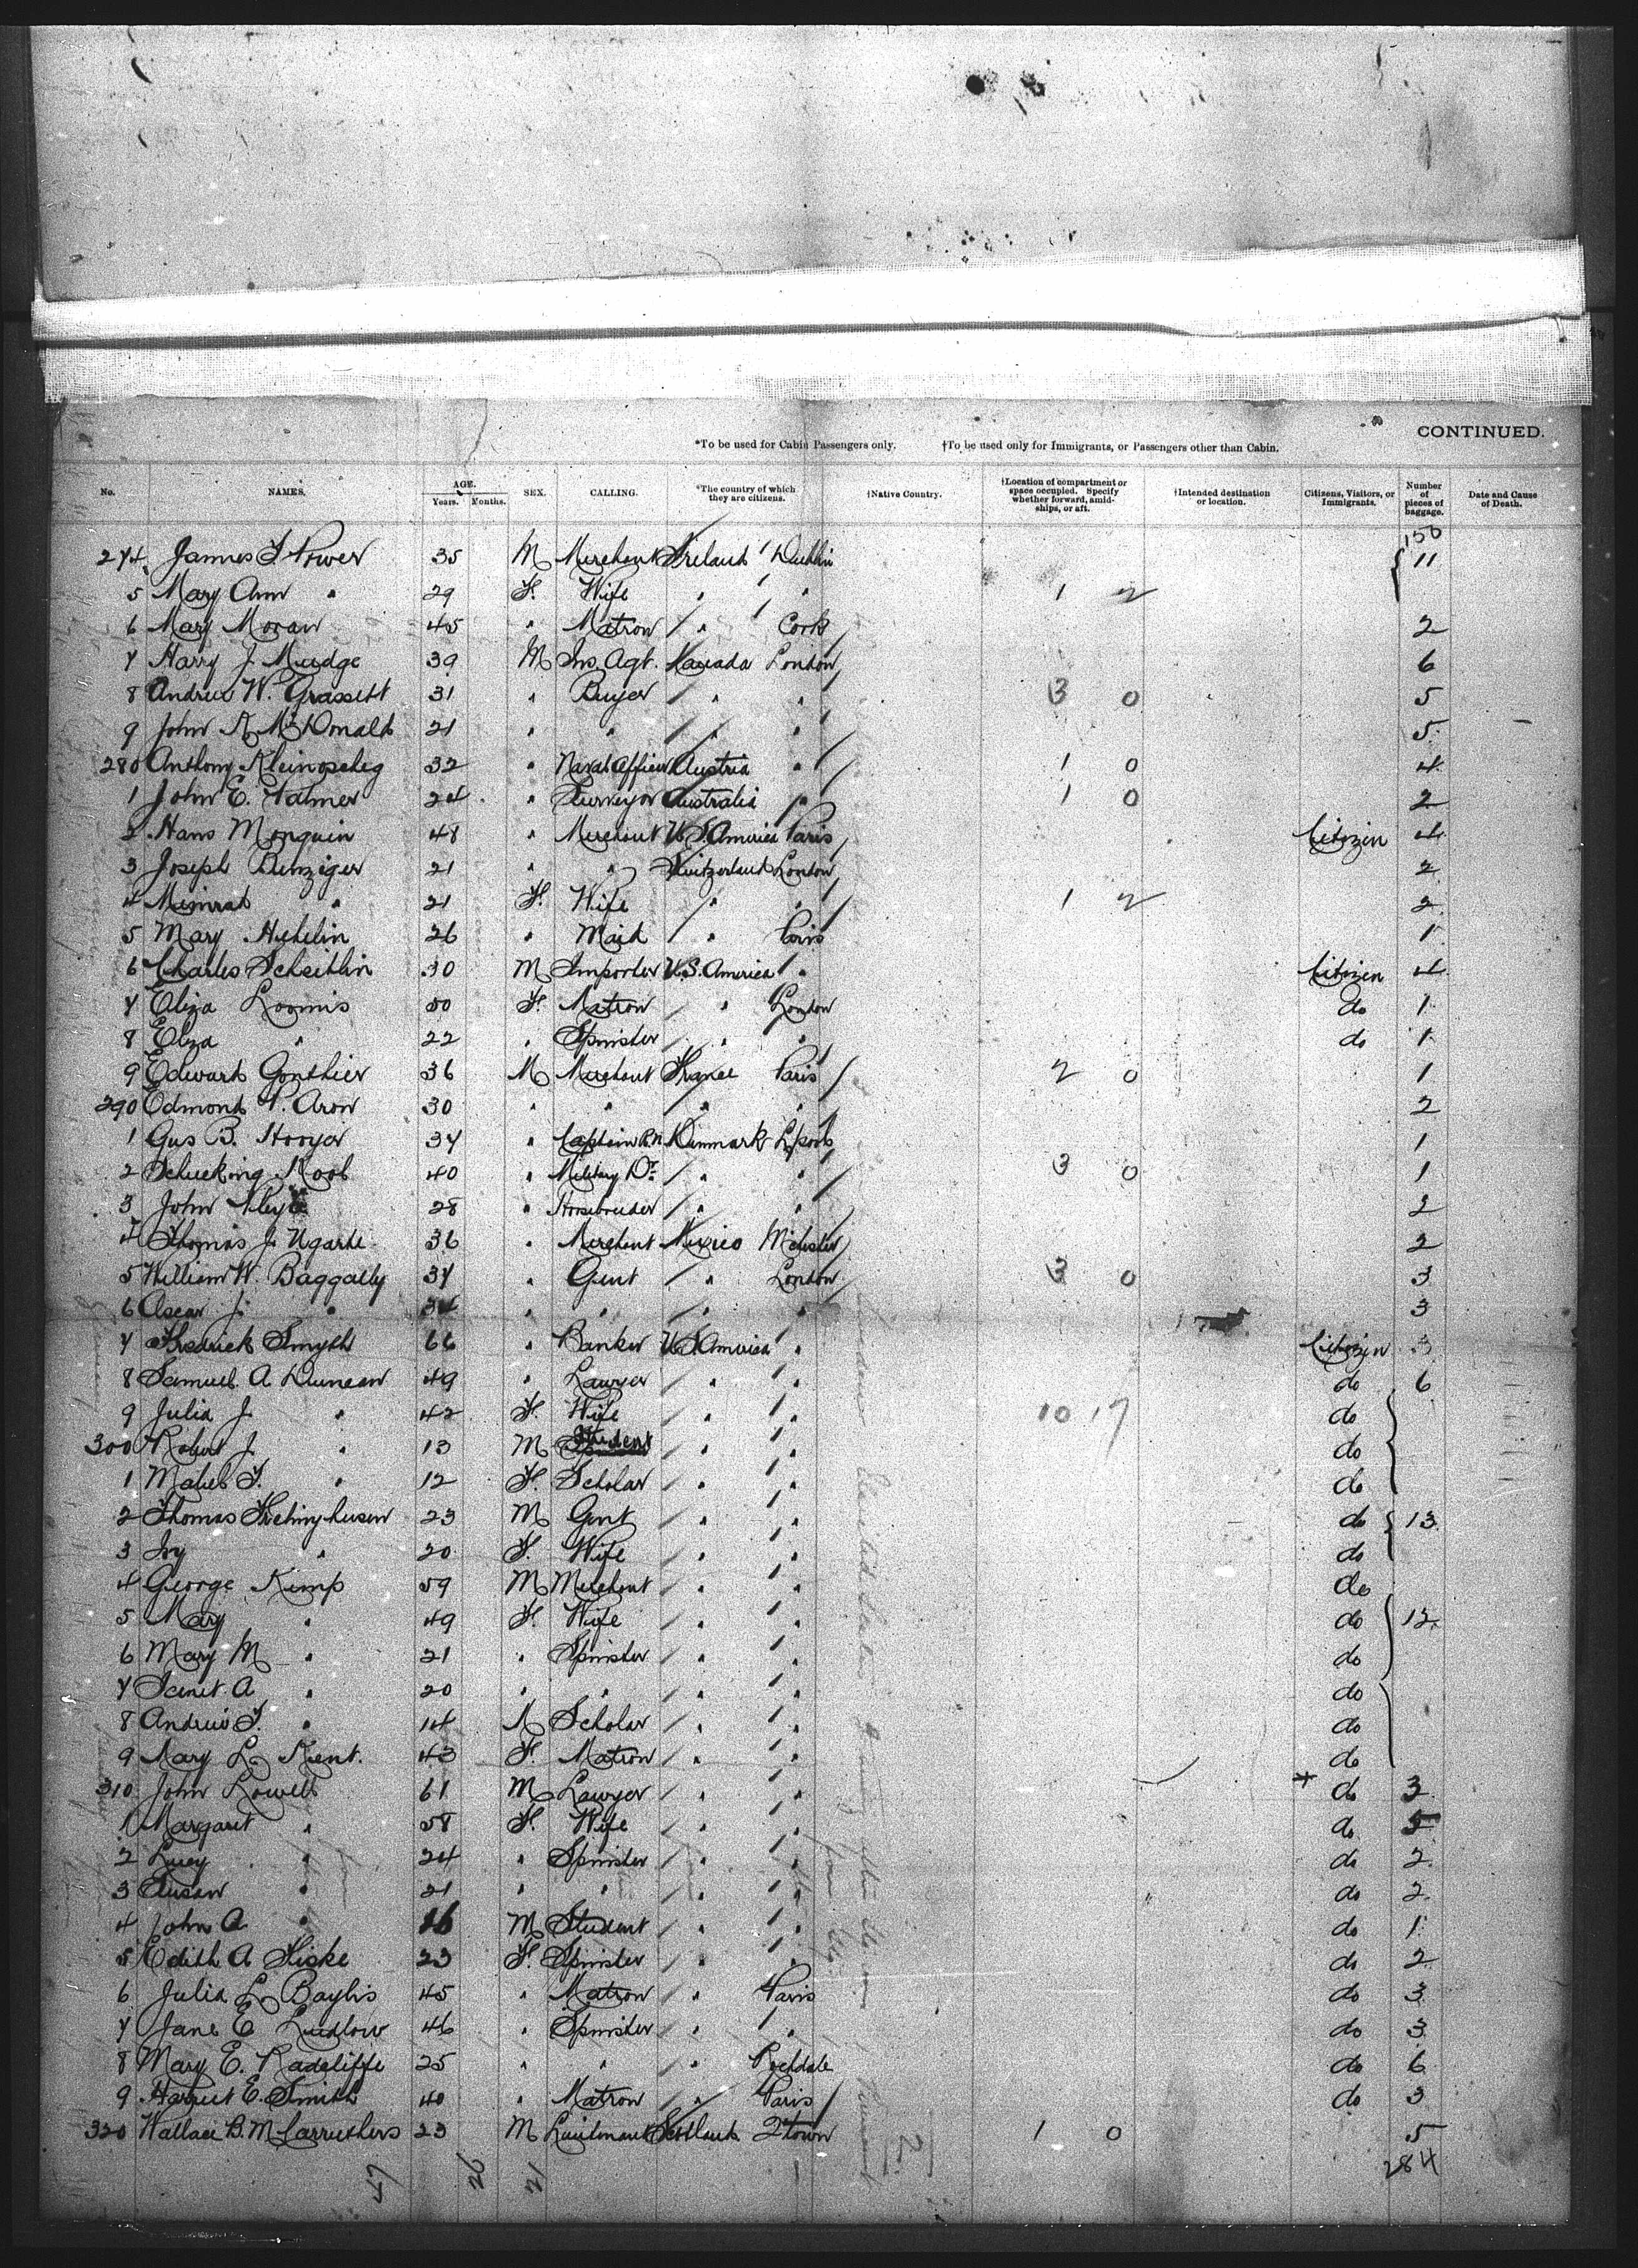 CONTINUED.
*To be used for Cabin Passengers only. †To be used only for Immigrants, or Passengers other than Cabin.
No. NAMES. AGE. Years. Months. SEX. CALLING. *The country of which they are citizens. †Native Country. †Location of compartment or space occupied. Specify whether forward, amidships, or aft. †Intended destination or location. Citizens, Visitors, or Immigrants. Number of pieces of baggage. Date and Cause of Death.
150
274 James F. Power 35 M Merchant Ireland Dublin 11
5 Mary Ann " 29 F. Wife " " 1 2
6 Mary Moran 45 " Matron " Cork 2
7 Harry J. Mudge 39 M Ins. Agt. Canada London 6
8 Andrew W. Grassett 31 " Buyer " " 3 0 5
9 John K. McDonald 21 " " " " 5
280 Anthony Kleinoscheg 32 " Naval Officer Austria " 1 0 4
1 John E. Palmer 24 " Surveyor Australia " 1 0 2
2 Hans Monquin 48 " Merchant U.S. America Paris Citizen 4
3 Joseph Benziger 21 " " Switzerland London 2
4 " 21 F. Wife " " 1 2 2
5 Mary 26 " Maid " Paris 1
6 Charles Scheitlin 30 M Importer U.S. America " Citizen 4
7 Eliza Loomis 50 F. Matron " London do 1
8 Eliza " 22 " Spinster " " do 1
9 Edward Gonthier 36 M Merchant France Paris 2 0 1
290 Edmond P. Aron 30 " " " " 2
1 Gus B. Hooyer 37 " Captain R.N. Denmark L'pool 1
2 Schucking Kool 40 " Military Dr. " " 3 0 1
3 John 28 " Horsebreeder " " 2
4 Thomas J. Ugarte 36 " Merchant Mexico M'chester 2
5 William W. Baggally 37 " Gent " London 3 0 3
6 Oscar J. " 34 " " " " 3
7 Fredrick Smyth 66 " Banker U.S. America " Citizen 3
8 Samuel A Duncan 49 " Lawyer " " do 6
9 Julia J. " 42 F. Wife " " 10 17 do
300 Robert J. " 13 M Student " " do
1 Mabel F. " 12 F. Scholar " " do
2 Thomas Frelinghusen 23 M Gent " " do 13
3 " 20 F. Wife " " do
4 George Kemp 59 M Merchant " " do
5 Mary " 49 F. Wife " " do 12
6 Mary M " 21 " Spinster " " do
7 Janet A " 20 " " " " do
8 Andrew F. " 14 M Scholar " " do
9 Mary L. Kent. 43 F. Matron " " do
310 John Lowell 61 M Lawyer " " do 3
1 Margaret " 58 F. Wife " " do 5
2 Lucy " 24 " Spinster " " do 2
3 Susan " 21 " " " " do 2
4 John A " 16 M Student " " do 1
5 Edith A Fiske 23 F. Spinster " " do 2
6 Julia L. Baylis 45 " Matron " Paris do 3
7 Jane E Ludlow 46 " Spinster " " do 3
8 Mary E. Radcliffe 25 " " " Rochdale do 6
9 Harriet E. Smith 40 " Matron " Paris do 3
320 Wallace B. M Carruthers 23 M Lieutenant Scotland Q'town 1 0 5
284